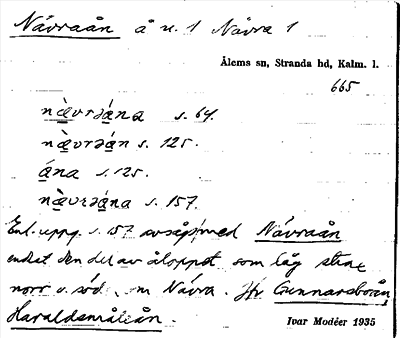 Návraån å n. 1 Návra 1
Ålems sn, Stranda hd, Kalm. l.
665
næ̀vrɘána s. 64.
næ̀vrɘán s. 125.
ána s. 125.
næ̀vrɘána s. 157.
Enl. uppg. s. 157 avsågs med Návraån
endast den del av åloppet som låg strax
norr o. söd. om Návra. Jfr Gunnarsboån,
Haraldsmåleån.
Ivar Modéer 1935